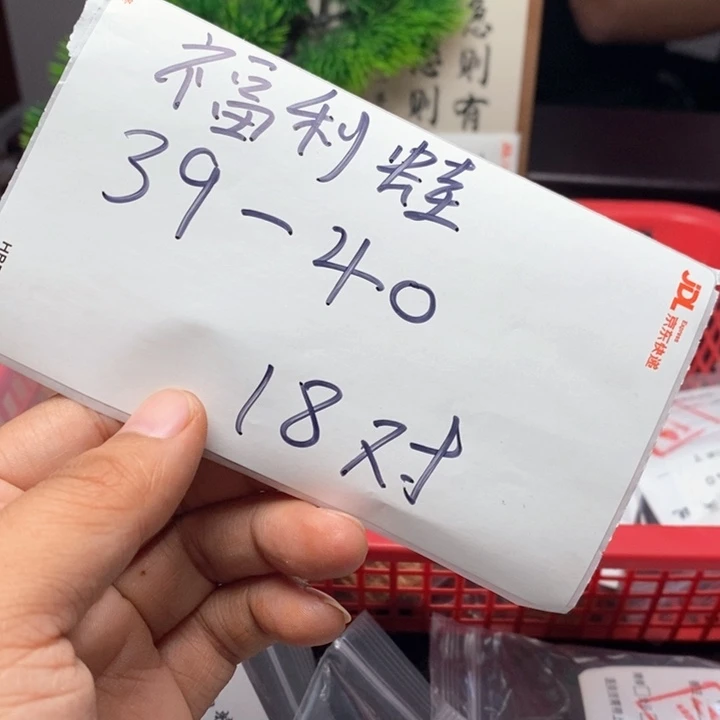 福利鞋
39-40
18对
JDL 京东快递
Express
急则有